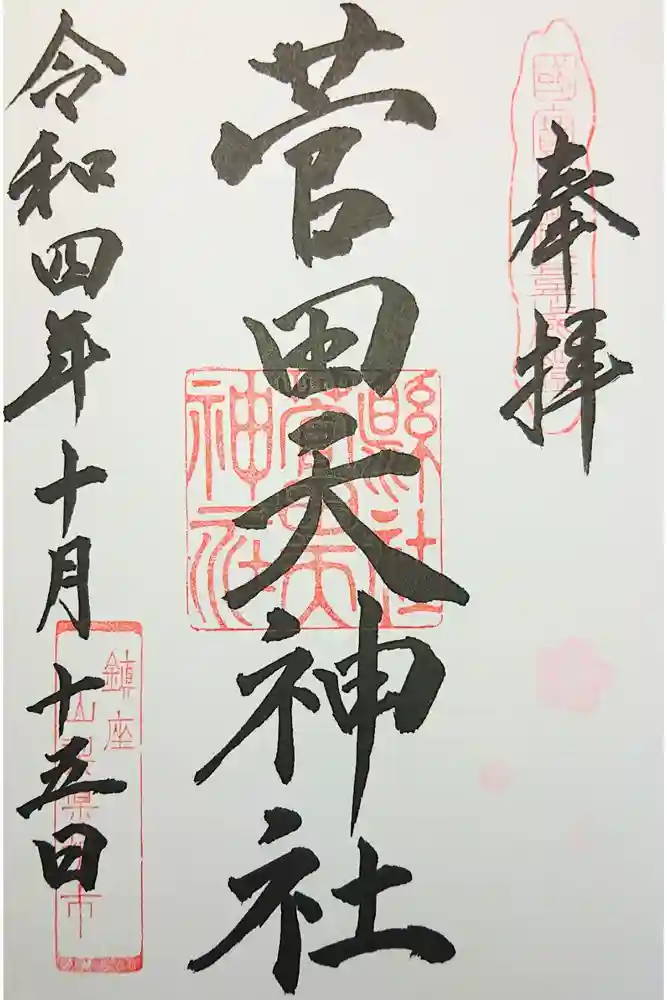 奉拝
菅田天神社
縣社
菅田天
神社
令和四年十月十五日
鎮座
山梨県 市